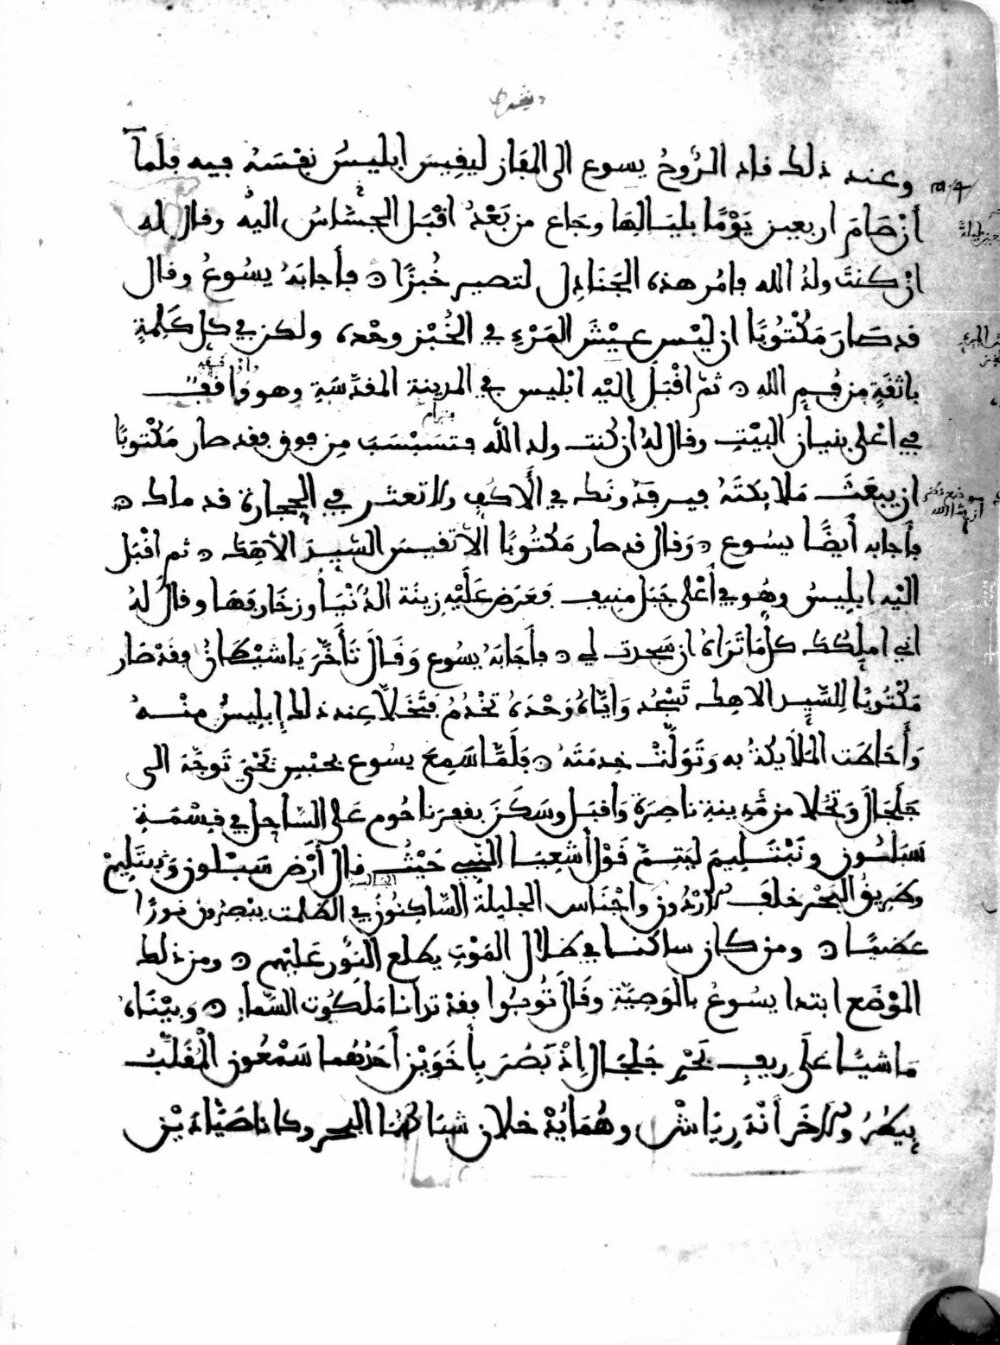 وعند ذلك قاد الرُّوحُ يسوع الى المفاز ليفيس ابليسُ نفْسَهُ فيه فلَمآ
أنْ صَامَ اربعين يَوْمًا بليالِها وجَاع من بَعْدُ اقْبَل الجسَّاسُ اليْه وقال له
ان كنتَ ولدُ الله فامُر هذه الجَنَادِل لتصير خُبزًا ۞ فأجابَهُ يسُوعُ وقال
قد صَارَ مَكْتُوبًا ان ليْس عيْشَ المَرْءِ في الخُبْز وحْده ولكن في كل كَلِمةٍ
باثقَةٍ من فَمِ الله ۞ ثم اقْبَلَ إليْه ابْليس في المدينة المقدّسَةِ وهو وَاقفٌ
في اعْلى بنيان البيْتِ وقال لهُ ان كنت ولد الله فتسَبْسَبَ مِن فوق فقد صار مَكْتوبًا
ان يبعَثَ مَلايكتَهُ فيرفدُونك في الأَكُفِ ولا تعثر في الحِجارة قدماك ۞
فأجابه أيضًا يسُوع ۞ وَقال قد صار مَكتُوبًا الا تفيسَ السّيدَ الاهَك ۞ ثم اقْبَل
اليْه ابلِيسُ وهُو في أعْلى جَبَل منيف فعَرَض عَلَيْهِ زينَة الدُنْيَا وزخَارفهَا وقال لهُ
اني املكك كلّ مَا تَرَاهُ ان سَجدت لي ۞ فأجَابَهُ يسُوع وَقَالَ تَأَخّرْ يَا شيْطَانُ فقدْ صَار
مَكْتُوبًا لِلسَّيِد الاهك تَسْجُدُ وَايَّاهُ وَحْدَهُ تَخْدُمُ فتَخَلا عِند ذلك إبليسُ مِنْهُ
وَأَحَاطَت المَلَايكَةُ به وَتَوَلّتْ خِدمَتَهُ ۞ فلَمّا سَمِعَ يسُوع بحبْسِ يَحْيَى تَوجَّهَ الى
جَلجَالَ وَتخَلا من مَّدِينةِ ناصِرَة وَاقبَل وسَكَنَ بقفرنَا حُوم عَلى السَّاحِل في قِسْمَةِ
سَبَلُون ونَبْتَلِيمَ ليَتِمَّ قَوْلُ أشعِيَا النَّبيِ حَيْثُ قال أرْضِ سَبُلون وَنبتَليِمْ
وطَريقُ البَحْر خلفَ الارْدُون وأجْنَاس الجليلة السَّاكنُون في الظلمتِ يبْصرون نورًا
عَظيمًا ۞ ومن كان ساكنا في ظلال المَوْتِ يطلع النُّور عَلَيْهم ۞ ومن ذلك
المَوْضَع ابتدا يسُوعُ بالوَصِيَّةِ وقَال تُوبُوا فقدْ تدَانا مَلكُوت السَّماء ۞ وَبيْنَاهُ
مَاشيًا عَلَى رِيفِ بَحْرِ جَلجَال إِذْ بَصُرَ بِأخَوَيْن أَحَدُهُما سَمْعُون المُقَلّبُ
بيطرُ والاخَر أنْدَرِيَاش وهُمَا يُدْخلان شبَاكهُمَا البحر وكانا صَيَّادَيْن